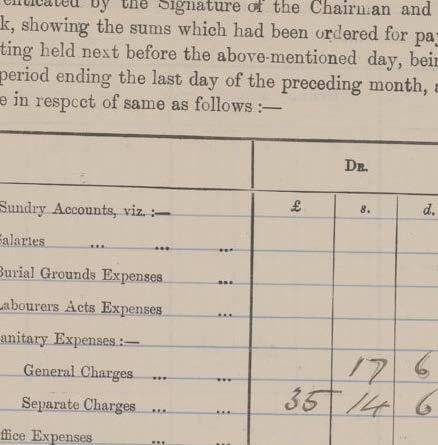 enticated by the Signature of the Chairman and
k, showing the sums which had been ordered for pay
ting held next before the above-mentioned day, bein
period ending the last day of the preceding month, a
e in respect of same as follows :—
DR.
Sundry Accounts, viz. :— £ s. d.
Salaries ... ... ...
Burial Grounds Expenses ...
Labourers Acts Expenses ...
anitary Expenses :—
General Charges ... ... 17 6
Separate Charges ... ... 35 14 6
ffice Expenses ... ...